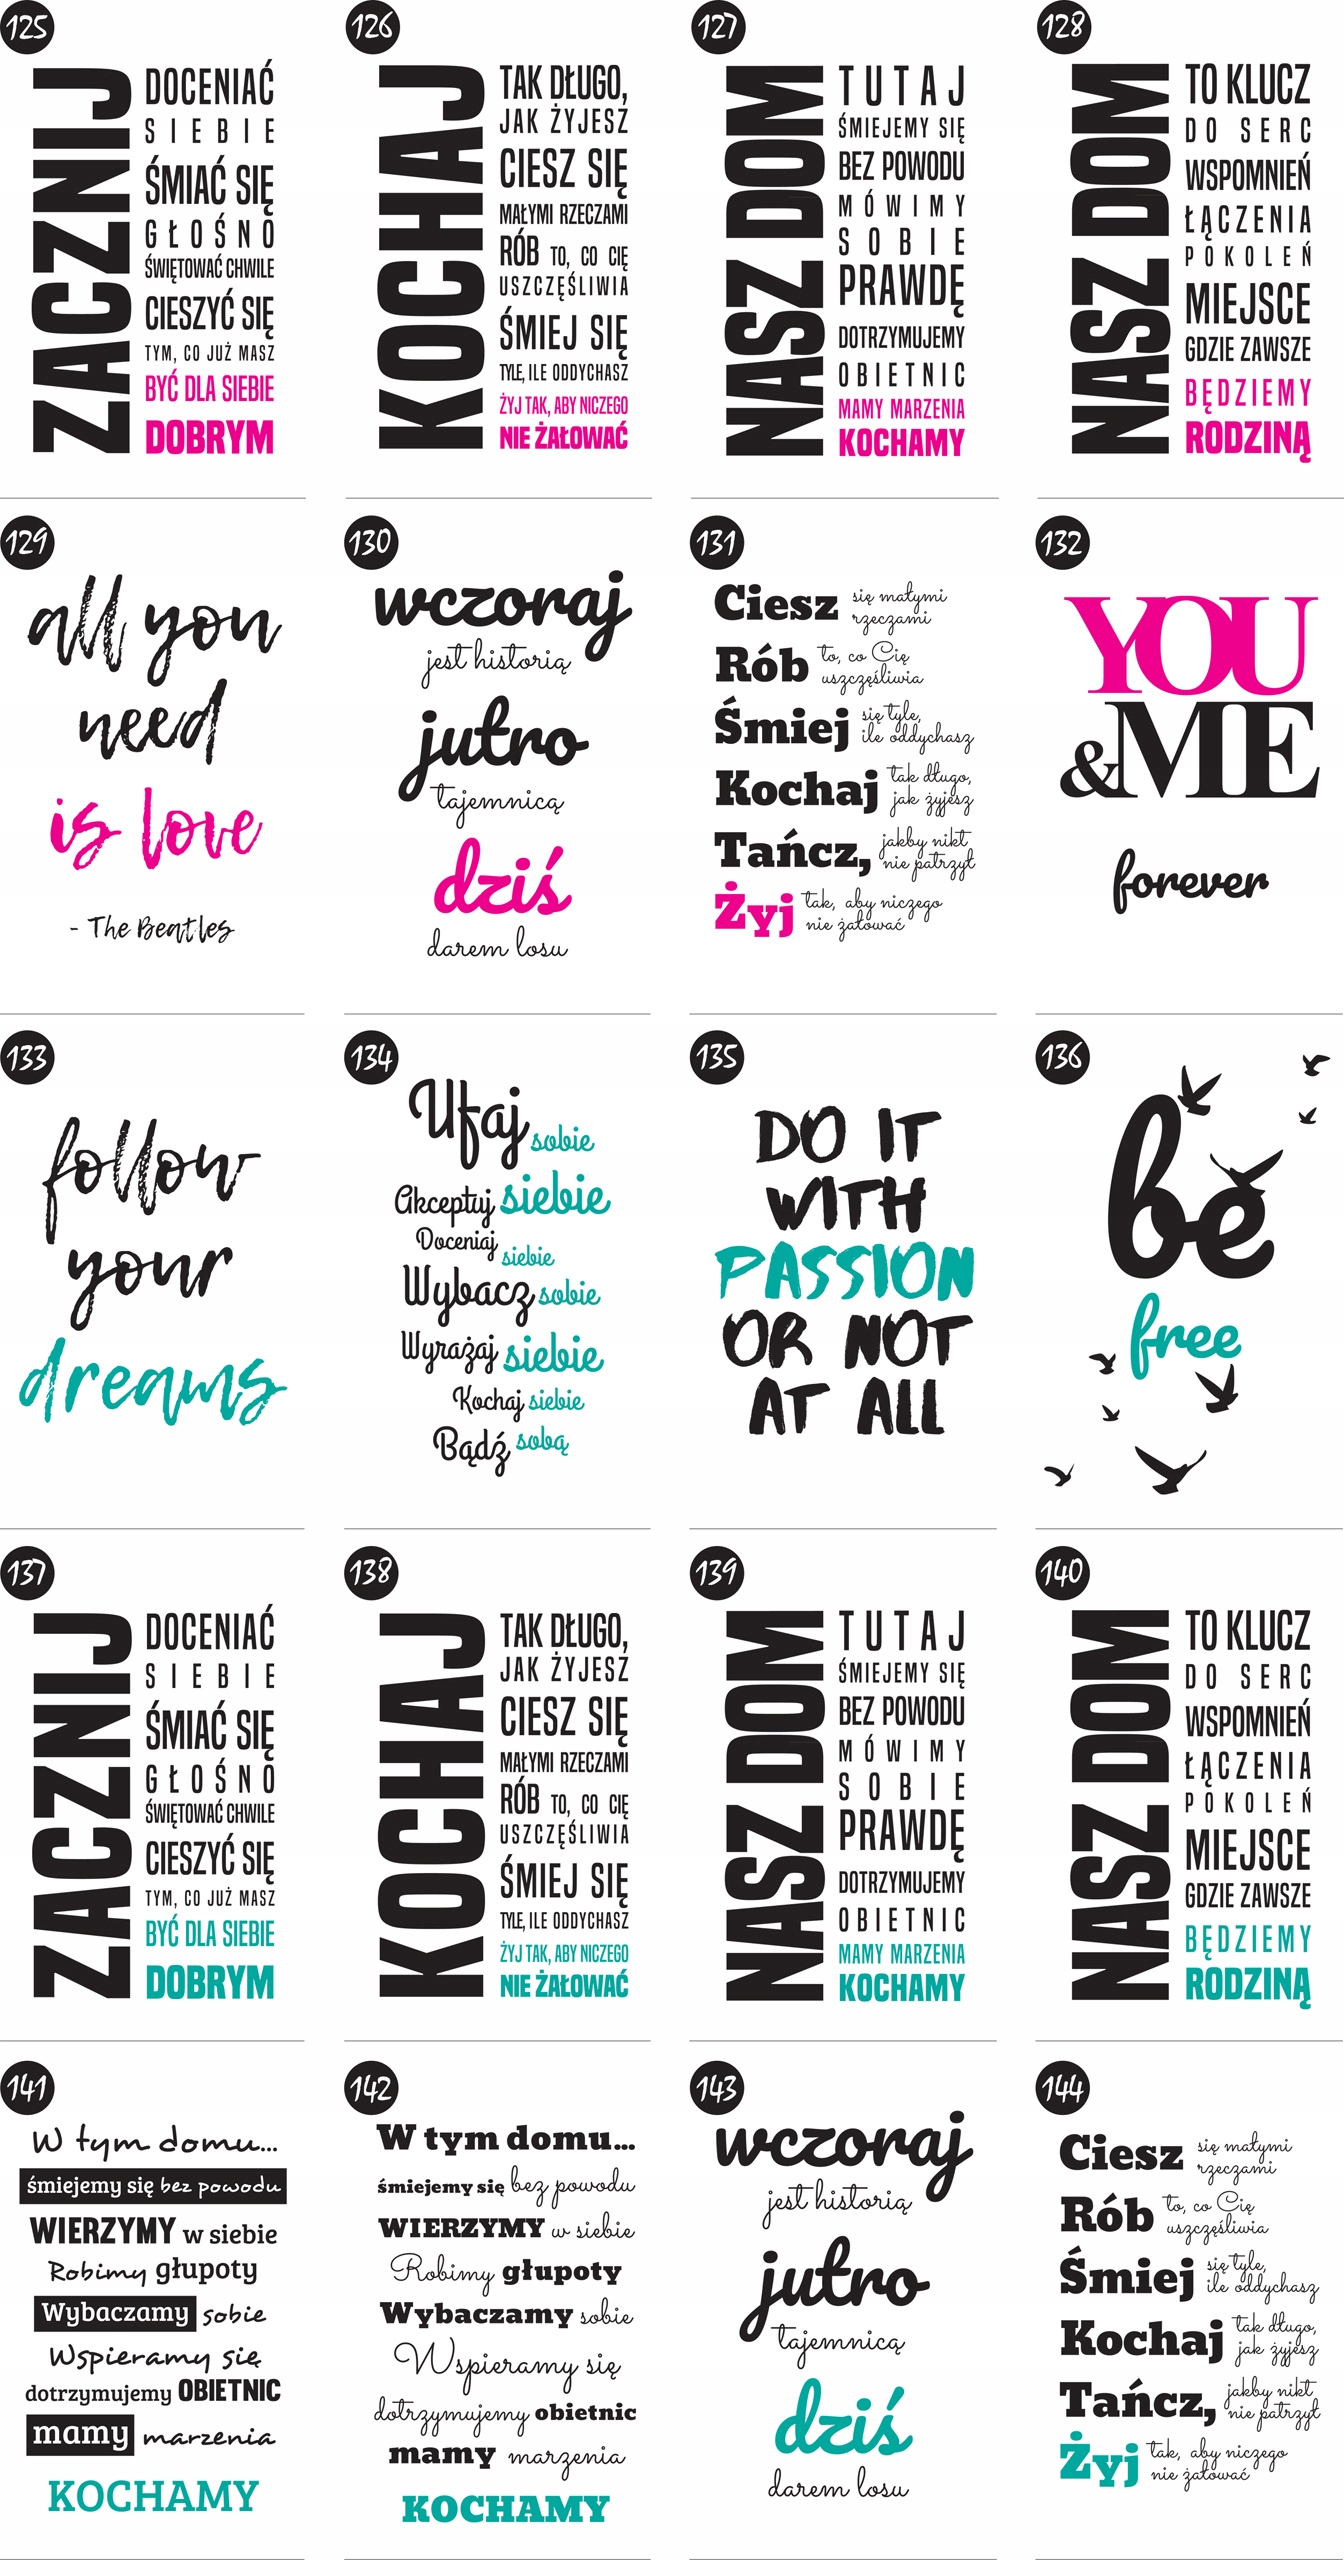 125
ZACZNIJ
DOCENIAĆ
SIEBIE
ŚMIAĆ SIĘ
GŁOŚNO
ŚWIĘTOWAĆ CHWILE
CIESZYĆ SIĘ
TYM, CO JUŻ MASZ
BYĆ DLA SIEBIE
DOBRYM
126
KOCHAJ
TAK DŁUGO,
JAK ŻYJESZ
CIESZ SIĘ
MAŁYMI RZECZAMI
RÓB TO, CO CIĘ
USZCZĘŚLIWIA
ŚMIEJ SIĘ
TYLE, ILE ODDYCHASZ
ŻYJ TAK, ABY NICZEGO
NIE ŻAŁOWAĆ
127
NASZ DOM
TUTAJ
ŚMIEJEMY SIĘ
BEZ POWODU
MÓWIMY
SOBIE
PRAWDĘ
DOTRZYMUJEMY
OBIETNIC
MAMY MARZENIA
KOCHAMY
128
NASZ DOM
TO KLUCZ
DO SERC
WSPOMNIEŃ
ŁĄCZENIA
POKOLEŃ
MIEJSCE
GDZIE ZAWSZE
BĘDZIEMY
RODZINĄ
129
all you
need
is love
- The Beatles
130
wczoraj
jest historią
jutro
tajemnicą
dziś
darem losu
131
Ciesz się małymi
rzeczami
Rób to, co Cię
uszczęśliwia
Śmiej się tyle,
ile oddychasz
Kochaj tak długo,
jak żyjesz
Tańcz, jakby nikt
nie patrzył
Żyj tak, aby niczego
nie żałować
132
YOU
&ME
forever
133
follow
your
dreams
134
Ufaj sobie
Akceptuj siebie
Doceniaj siebie
Wybacz sobie
Wyrażaj siebie
Kochaj siebie
Bądź sobą
135
DO IT
WITH
PASSION
OR NOT
AT ALL
136
be
free
137
ZACZNIJ
DOCENIAĆ
SIEBIE
ŚMIAĆ SIĘ
GŁOŚNO
ŚWIĘTOWAĆ CHWILE
CIESZYĆ SIĘ
TYM, CO JUŻ MASZ
BYĆ DLA SIEBIE
DOBRYM
138
KOCHAJ
TAK DŁUGO,
JAK ŻYJESZ
CIESZ SIĘ
MAŁYMI RZECZAMI
RÓB TO, CO CIĘ
USZCZĘŚLIWIA
ŚMIEJ SIĘ
TYLE, ILE ODDYCHASZ
ŻYJ TAK, ABY NICZEGO
NIE ŻAŁOWAĆ
139
NASZ DOM
TUTAJ
ŚMIEJEMY SIĘ
BEZ POWODU
MÓWIMY
SOBIE
PRAWDĘ
DOTRZYMUJEMY
OBIETNIC
MAMY MARZENIA
KOCHAMY
140
NASZ DOM
TO KLUCZ
DO SERC
WSPOMNIEŃ
ŁĄCZENIA
POKOLEŃ
MIEJSCE
GDZIE ZAWSZE
BĘDZIEMY
RODZINĄ
141
W tym domu...
śmiejemy się bez powodu
WIERZYMY w siebie
Robimy głupoty
Wybaczamy sobie
Wspieramy się
dotrzymujemy OBIETNIC
mamy marzenia
KOCHAMY
142
W tym domu...
śmiejemy się bez powodu
WIERZYMY w siebie
Robimy głupoty
Wybaczamy sobie
Wspieramy się
dotrzymujemy obietnic
mamy marzenia
KOCHAMY
143
wczoraj
jest historią
jutro
tajemnicą
dziś
darem losu
144
Ciesz się małymi
rzeczami
Rób to, co Cię
uszczęśliwia
Śmiej się tyle,
ile oddychasz
Kochaj tak długo,
jak żyjesz
Tańcz, jakby nikt
nie patrzył
Żyj tak, aby niczego
nie żałować